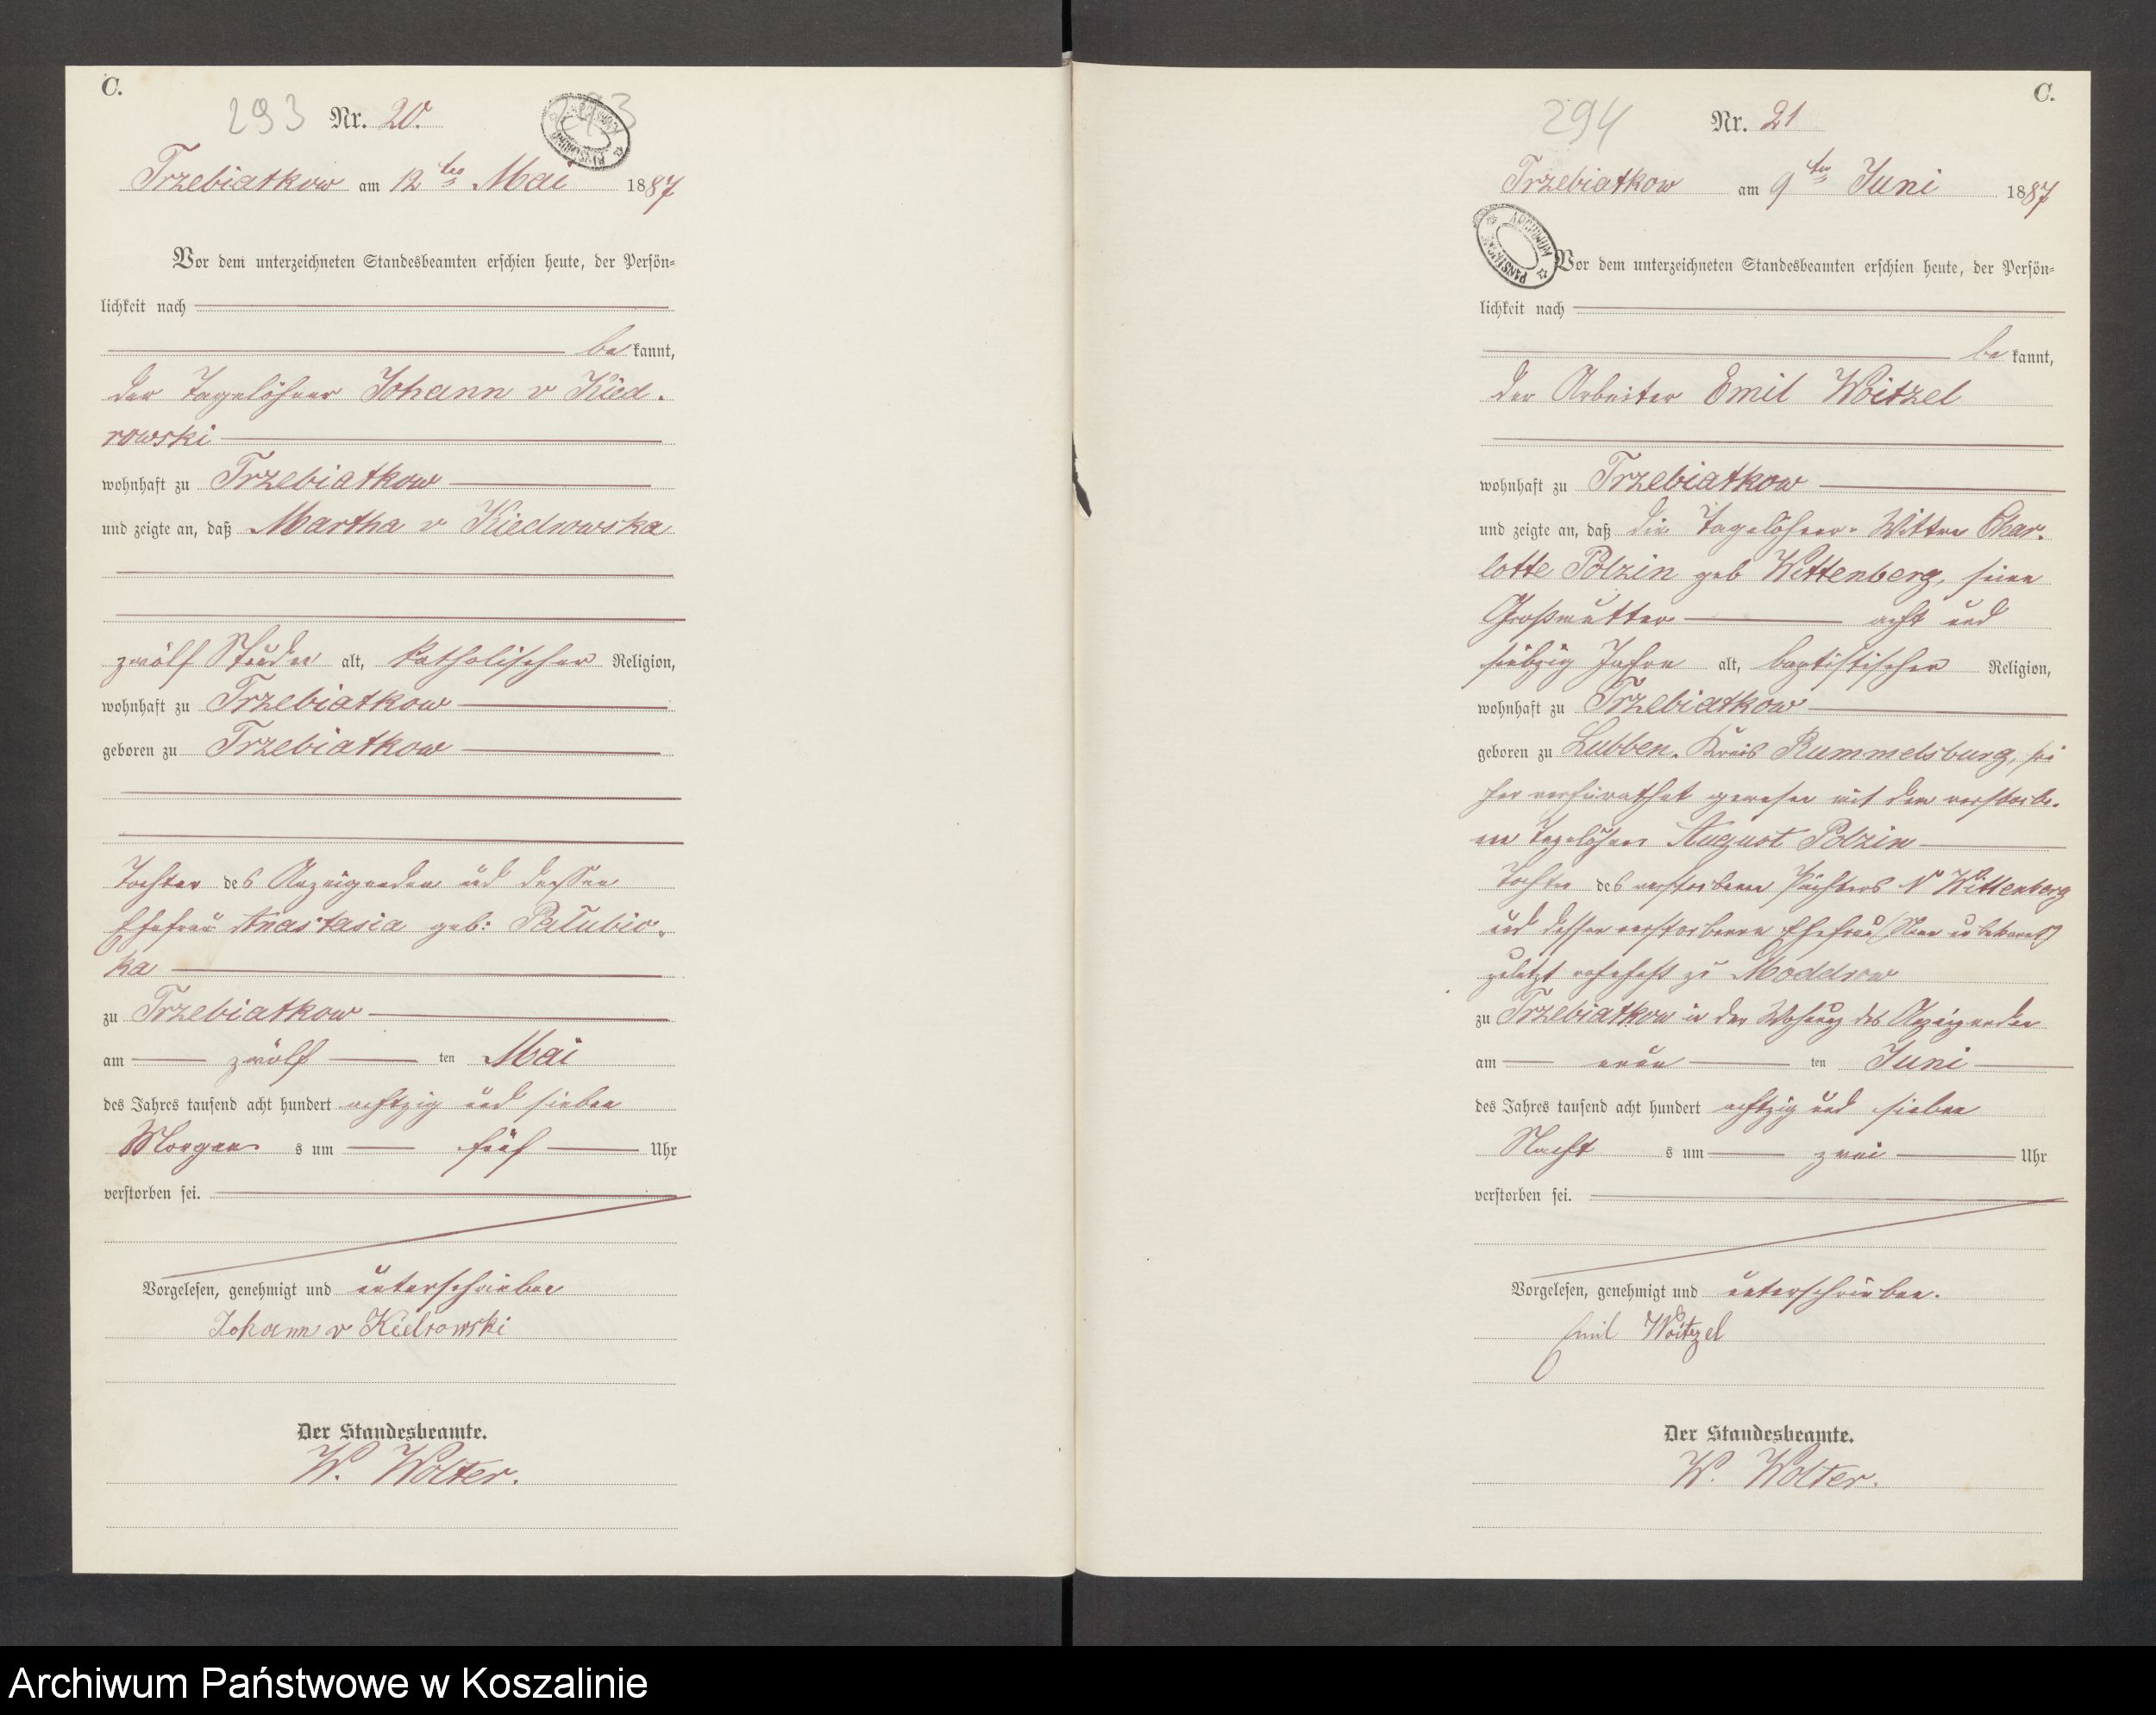 C.
293 Nr. 20.
Trzebiatkow am 12 ten Mai 1887
Vor dem unterzeichneten Standesbeamten erschien heute, der Persön=
lichkeit nach
be kannt,
der Tagelöhner Johann v Kied.
rowski
wohnhaft zu Trzebiatkow
und zeigte an, daß Martha v Kiedrowska
zwölf Stunden alt, katholischer Religion,
wohnhaft zu Trzebiatkow
geboren zu Trzebiatkow
Tochter des Anzeigenden und dessen
Ehefrau Anastasia geb:
ka
zu Trzebiatkow
am zwölf ten Mai
des Jahres tausend acht hundert achtzig und sieben
Morgens um fünf Uhr
verstorben sei.
Vorgelesen, genehmigt und unterschrieben
Johann v Kiedrowski
Der Standesbeamte.
W. Wolter.
C.
294 Nr. 21
Trzebiatkow am 9 ten Juni 1887
ARCHIWUM PAŃSTWOWE
Vor dem unterzeichneten Standesbeamten erschien heute, der Persön=
lichkeit nach
be kannt,
der Arbeiter Emil Woitzel
wohnhaft zu Trzebiatkow
und zeigte an, daß die Tagelöhner-Wittwe Char.
lotte Polzin geb Wittenberg, seine
Großmutter acht und
siebzig Jahre alt, baptistischer Religion,
wohnhaft zu Trzebiatkow
geboren zu Lubben, Kreis Rummelsburg,
her verheirathet gewesen mit dem verstorbe.
nen Tagelöhner August Polzin
Tochter des verstorbenen Pächters N Wittenberg
und dessen verstorbenen Ehefrau (Name unbekannt)
zuletzt wohnhaft zu Moddrow
zu Trzebiatkow in der Wohnung des Anzeigenden
am neun ten Juni
des Jahres tausend acht hundert achtzig und sieben
Nacht s um zwei Uhr
verstorben sei.
Vorgelesen, genehmigt und unterschrieben.
Emil Woitzel
Der Standesbeamte.
W. Wolter.
Archiwum Państwowe w Koszalinie